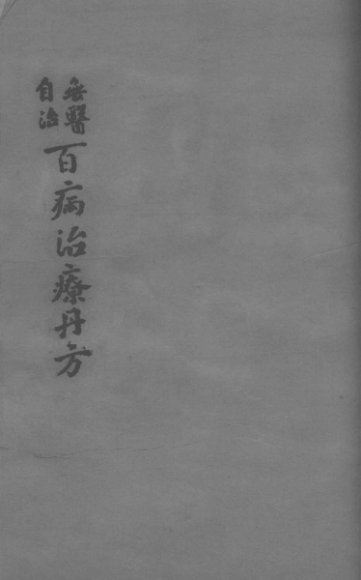 無醫
自治
百病治療丹方